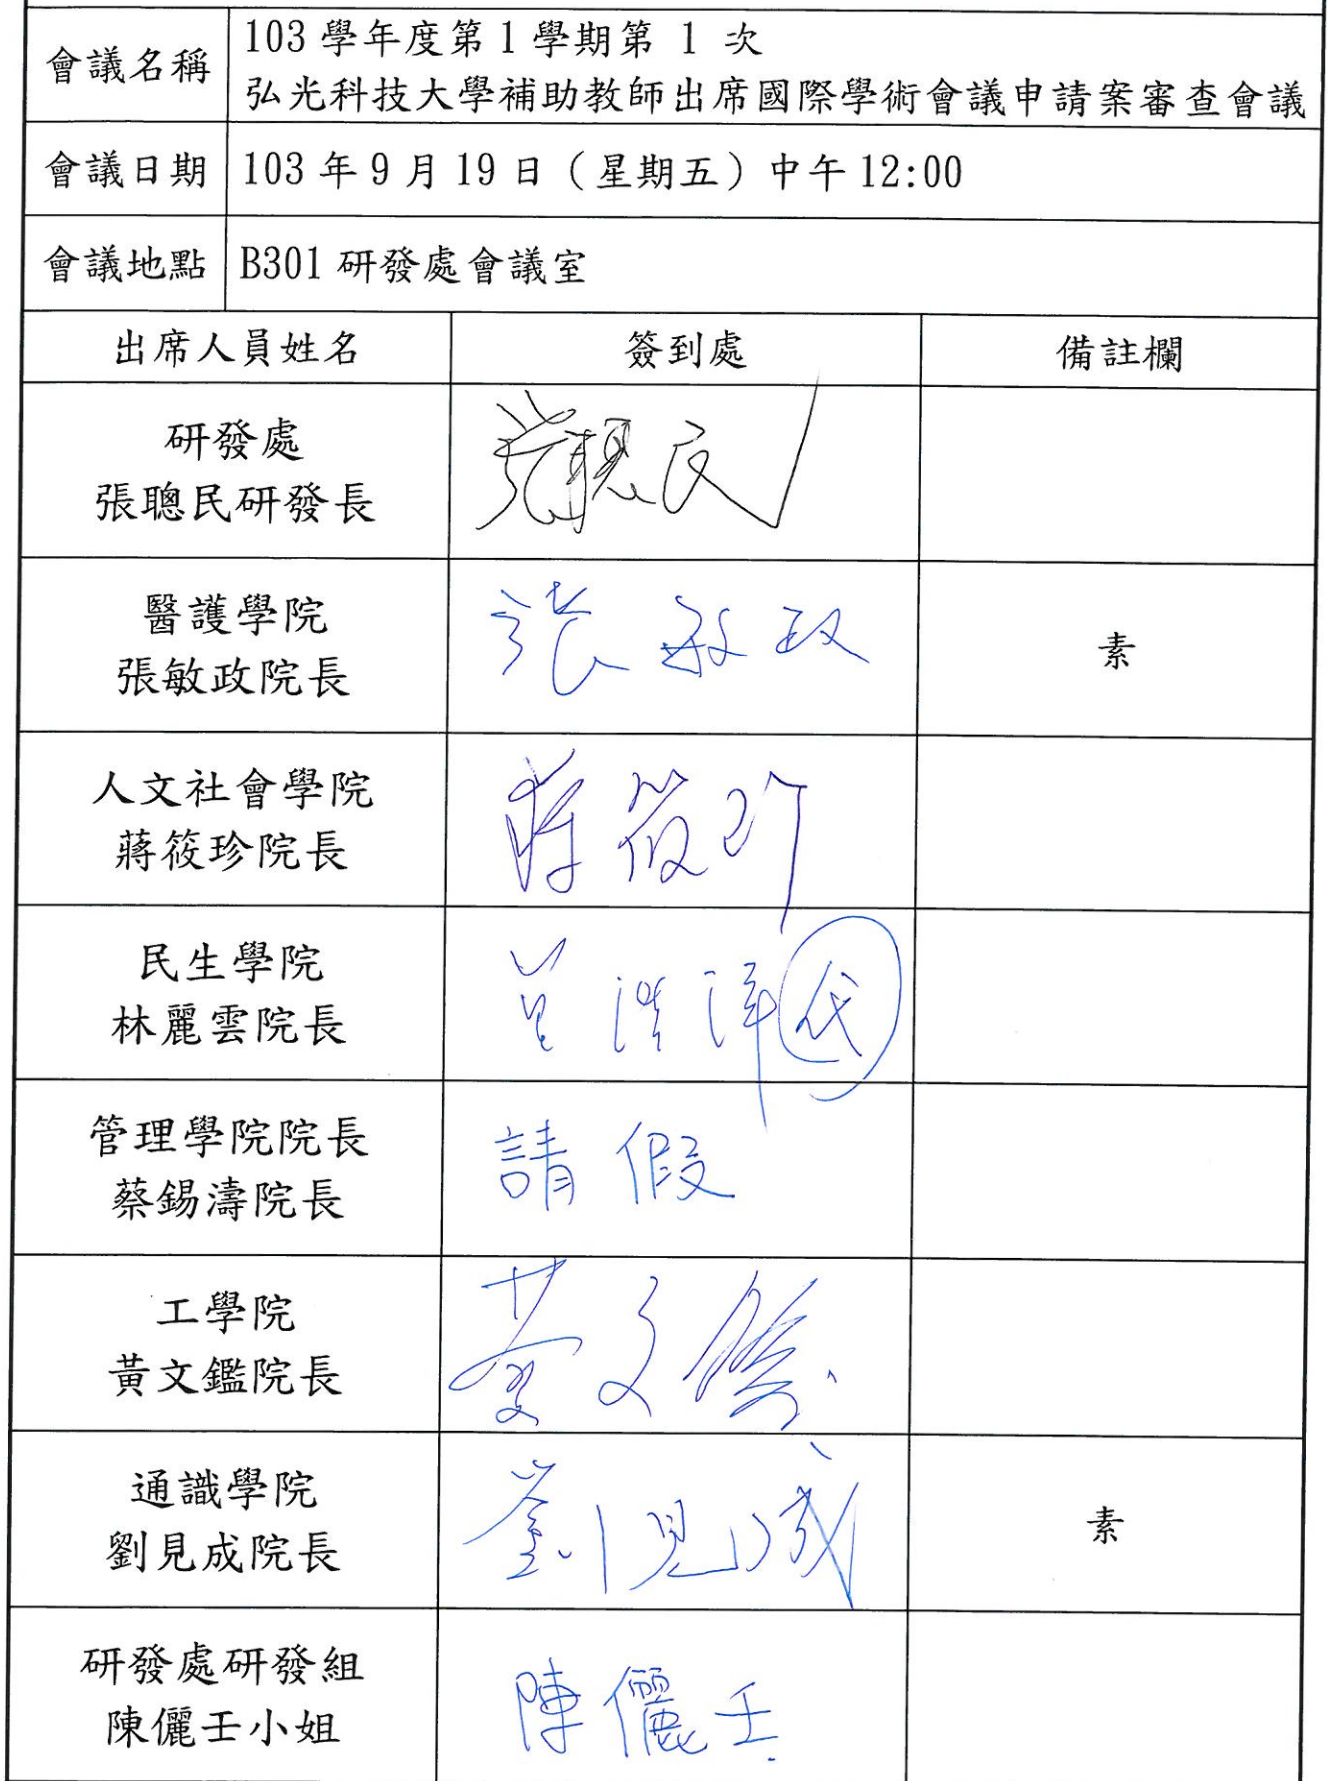 會議名稱
103 學年度第 1 學期第 1 次
弘光科技大學補助教師出席國際學術會議申請案審查會議
會議日期
103 年 9 月 19 日（星期五）中午 12:00
會議地點
B301 研發處會議室
出席人員姓名 簽到處 備註欄
研發處
張聰民研發長
張聰民
醫護學院
張敏政院長
張敏政
素
人文社會學院
蔣筱珍院長
蔣筱珍
民生學院
林麗雲院長
代
管理學院院長
蔡錫濤院長
請假
工學院
黃文鑑院長
黃文鑑
通識學院
劉見成院長
劉見成
素
研發處研發組
陳儷壬小姐
陳儷壬